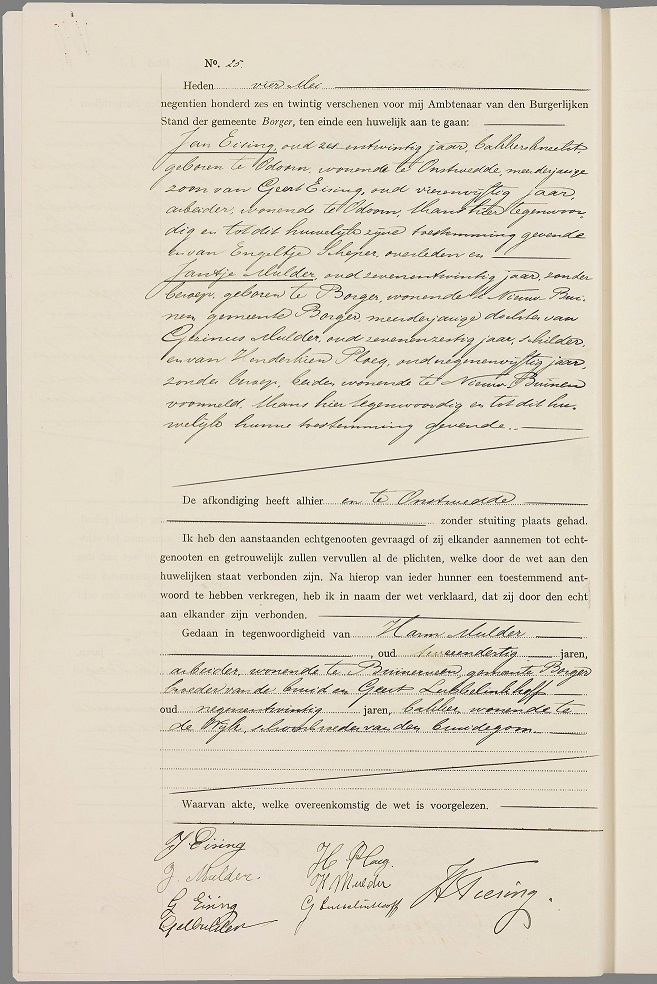 No. 25.
Heden vier Mei
negentien honderd zes en twintig verschenen voor mij Ambtenaar van den Burgerlijken
Stand der gemeente Borger, ten einde een huwelijk aan te gaan:
Jan Eising, oud zes entwintig jaar, bakkersknecht,
geboren te Odoorn, wonende te Onstwedde, meerderjarige
zoon van Geert Eising, oud vierenvijftig jaar,
arbeider, wonende te Odoorn, thans hier tegenwoor-
dig en tot dit huwelijk zijne toestemming gevende
en van Engeltje Scheper, overleden en
Jantje Mulder, oud zevenentwintig jaar, zonder
beroep, geboren te Borger, wonende te Nieuw-Bui-
nen, gemeente Borger meerderjarige dochter van
Gerinus Mulder, oud zevenenzestig jaar, schilder,
en van Henderkien Ploeg, oud negenenvijftig jaar,
zonder beroep, beiden wonende te Nieuw-Buinen
voormeld, thans hier tegenwoordig en tot dit hu-
welijk hunne toestemming gevende.
De afkondiging heeft alhier en te Onstwedde
zonder stuiting plaats gehad.
Ik heb den aanstaanden echtgenooten gevraagd of zij elkander aannemen tot echt-
genooten en getrouwelijk zullen vervullen al de plichten, welke door de wet aan den
huwelijken staat verbonden zijn. Na hierop van ieder hunner een toestemmend ant-
woord te hebben verkregen, heb ik in naam der wet verklaard, dat zij door den echt
aan elkander zijn verbonden.
Gedaan in tegenwoordigheid van Harm Mulder
, oud jaren,
arbeider, wonende te Buinerveen, gemeente Borger
broeder van de bruid en Geert Lubbelinkhoff
oud negenentwintig jaren, bakker, wonende te
de Wijk, schoonbroeder van den bruidegom.
Waarvan akte, welke overeenkomstig de wet is voorgelezen.
J Eising
J. Mulder.
G Eising
G Mulder
H Ploeg.
H Mulder
G Lubbelinkhoff